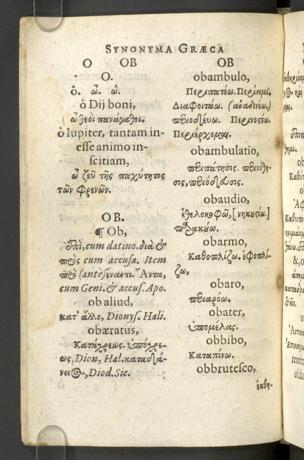 SYNONYMA GRÆCA
O OB
O.
ὁ. ὦ. ὤ.
ô Dij boni,
ὦ θεοὶ πανάγαθοι.
ô Iupiter, tantam in-
esse animo in-
scitiam,
ὦ ζεῦ τῆς παχύτητος
τῶν φρενῶν.
OB.
¶ Ob,
ἐπὶ, cum datiuo. διὰ &
πρὸς cum accusa. Item
πρὸ (ante) ἐναντι. Αντι,
cum Geni. & accus. Apo.
ob aliud,
κατ' ἄλλο, Dionys. Hali.
obæratus,
Κατάχρεως. ὑπόχρε-
ως, Dion, Hal. καταδλά-
Diod. Sic.
OB
obambulo,
Περιπατέω. Περίειμι,
Διαφοιτάω.
Περινοστέω.
Περιέρχομαι.
obambulatio,
περιπάτησις.
obaudio,
παρακούω.
obarmo,
Καθοπλίζω. ἐφοπλί-
ζω,
obaro,
περιαρόω.
obater,
ὑπομέλας.
obbibo,
Καταπίνω.
obbrutesco,